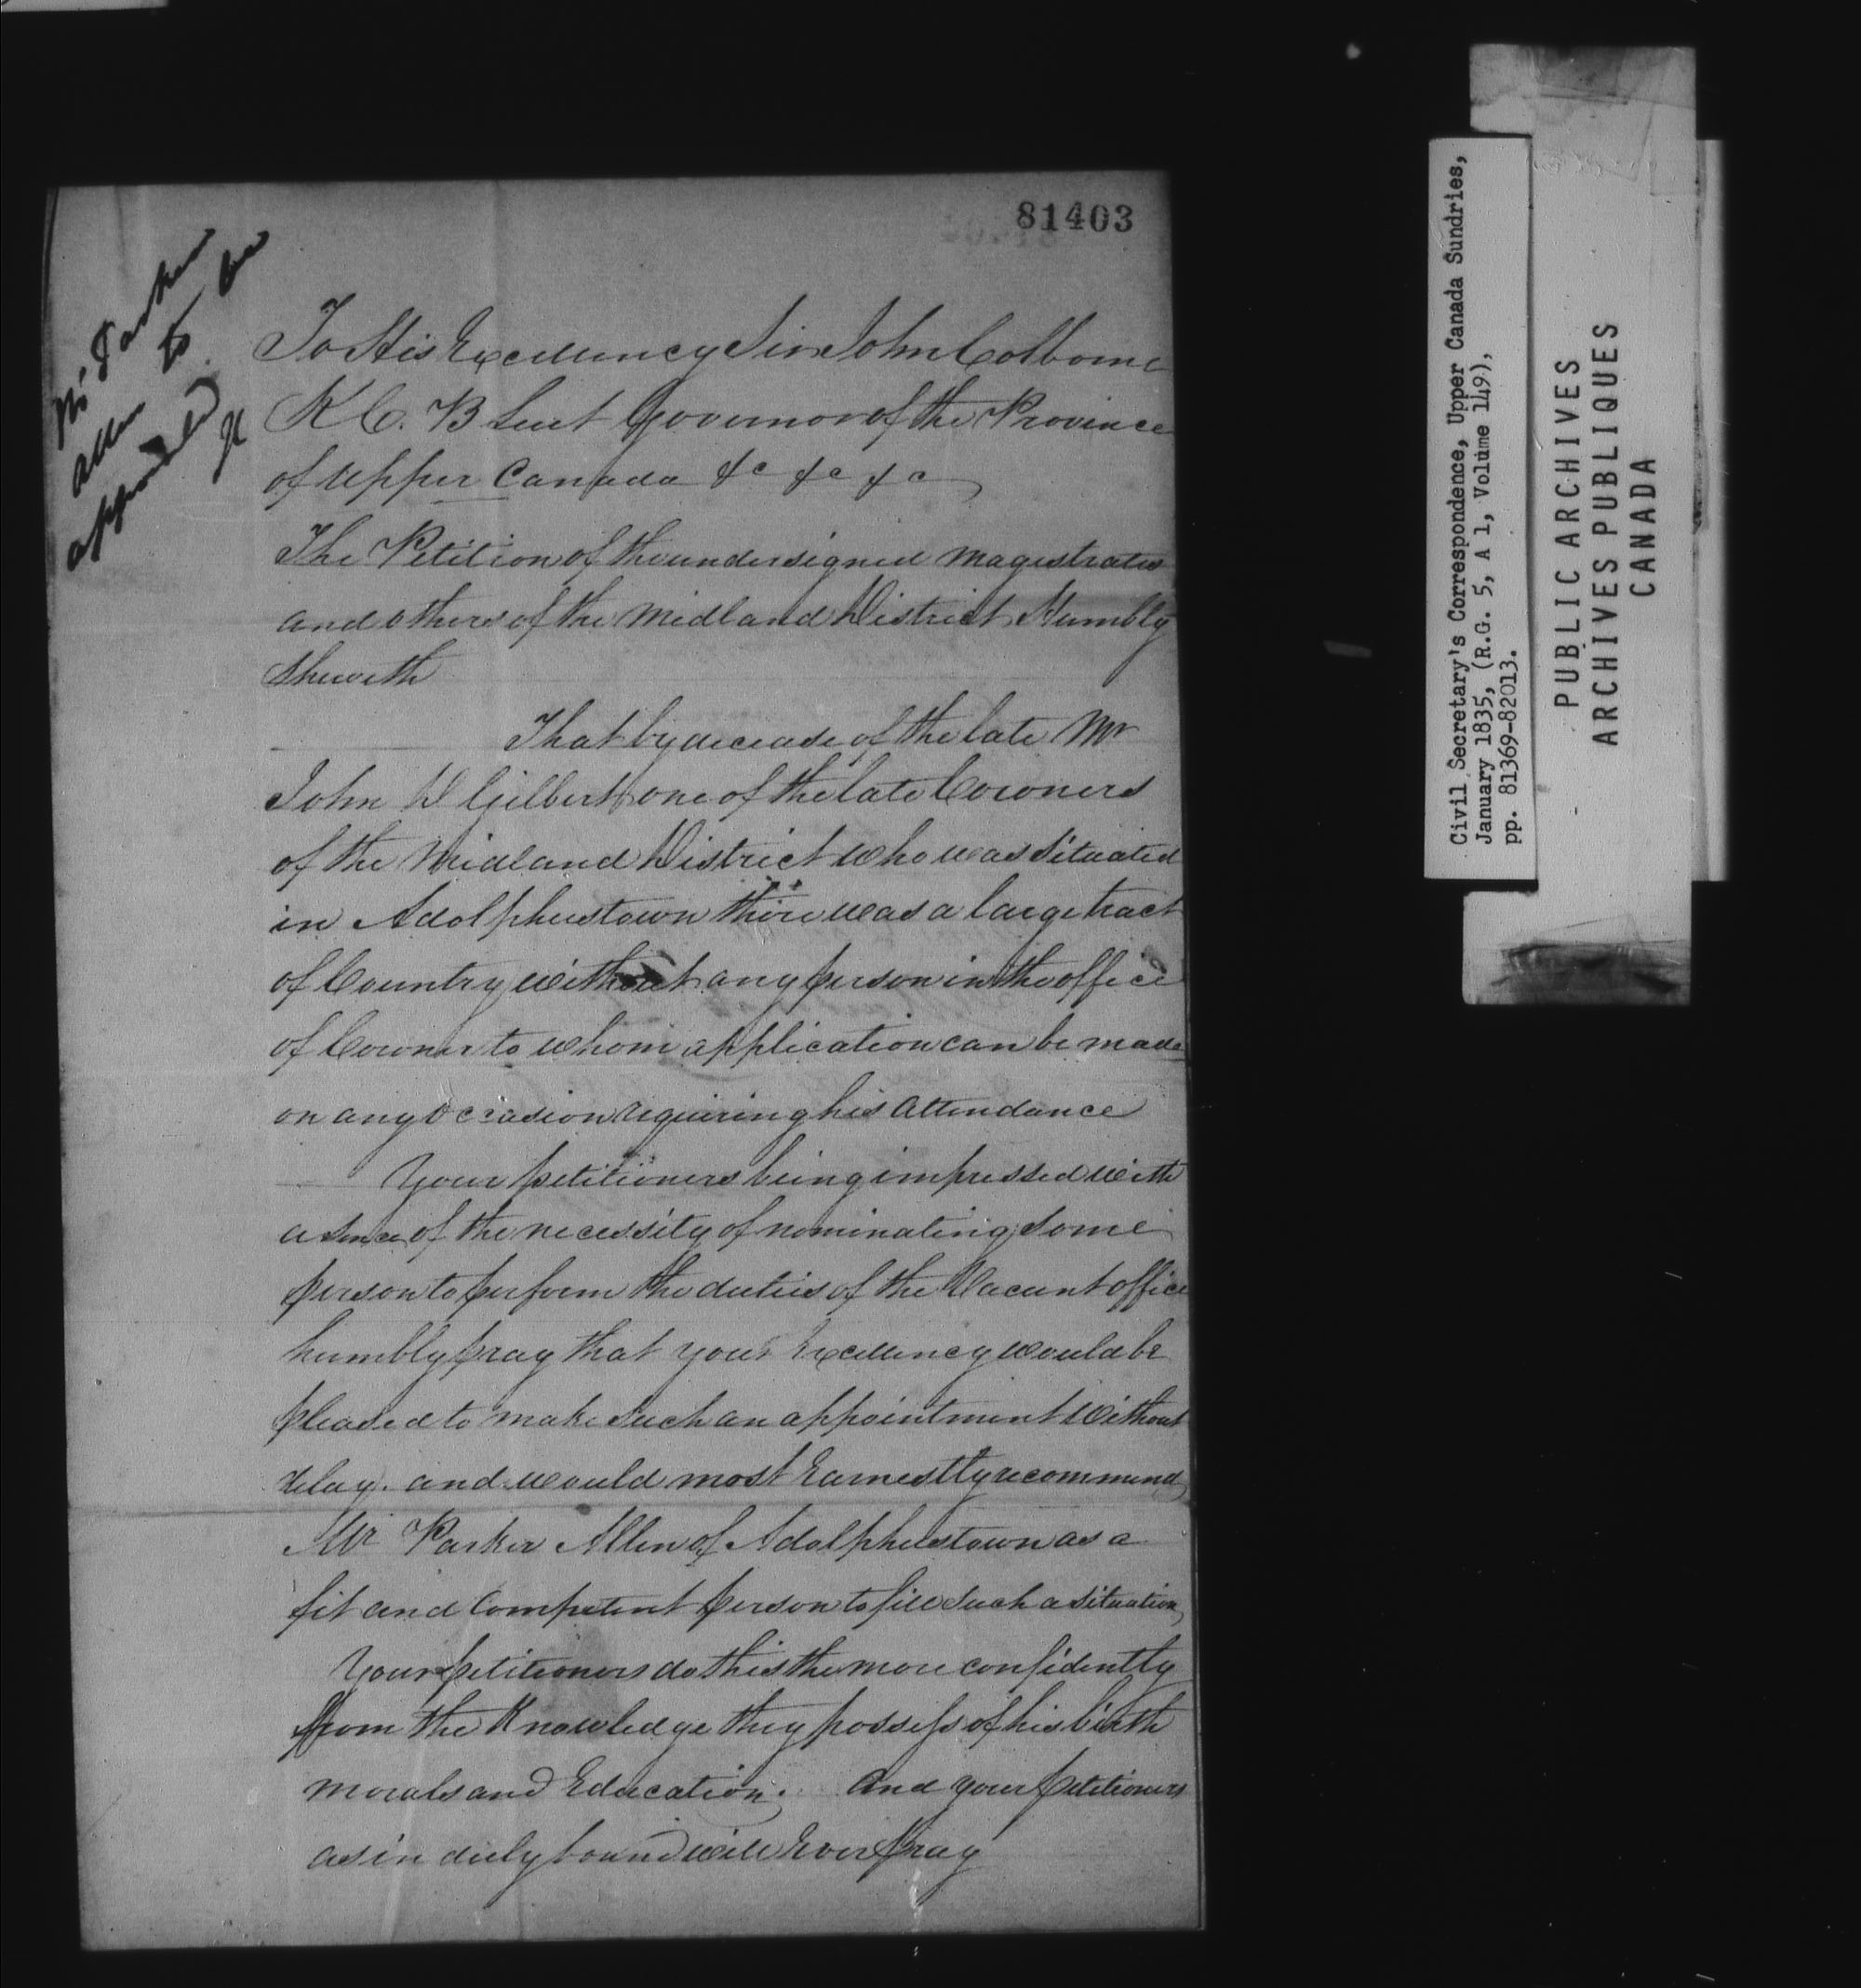 81403
Mr Parker
Allen to be
appointed
To His Excellency Sir John Colborne
K C. B Lieut Governor of the Province
of Upper Canada &c &c &c
The Petition of the undersigned Magistrates
and others of the Midland District Humbly
Sheweth
That by decease of the late Mr
John W Gilbert one of the late Coroners
of the Midland District who was situated
in Adolphustown there was a large tract
of Country without any person in the office
of Coroner to whom application can be made
on any Occasion requiring his Attendance
Your petitioners being impressed with
a sence of the necessity of nominating some
person to perform the duties of the Vacant office
humbly pray that your Excellency would be
pleased to make such an appointment Without
delay. and would most Earnestly recommend
Mr Parker Allen of Adolphustown as a
fit and Competent person to fill such a situation
Your petitioners do this the more confidently
from the Knowledge they possess of his birth
morals and Education. And your petitioners
as in duty bound will Ever Pray
Civil Secretary's Correspondence, Upper Canada Sundries,
January 1835, (R.G. 5, A 1, Volume 149),
pp. 81369-82013.
PUBLIC ARCHIVES
ARCHIVES PUBLIQUES
CANADA